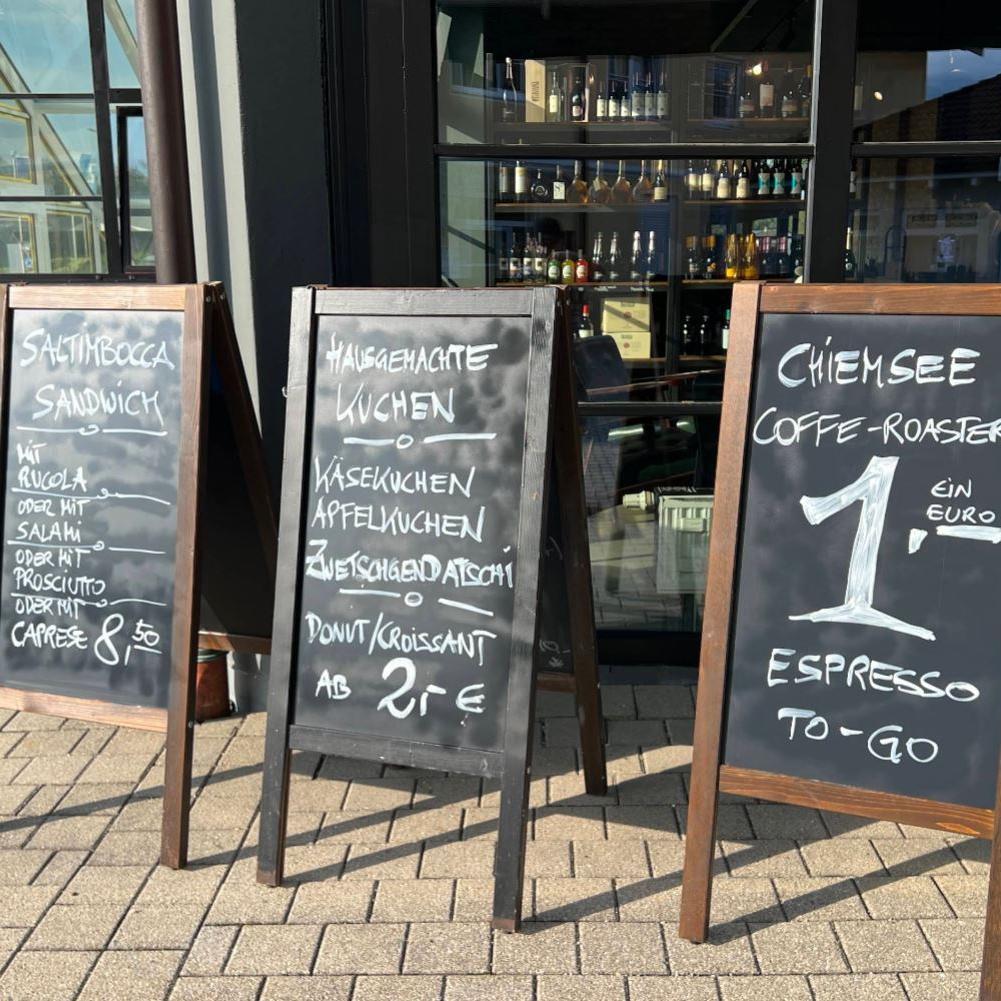 SALTIMBOCCA
SANDWICH
MIT
RUCOLA
ODER MIT
SALAMI
ODER MIT
PROSCIUTTO
ODER MIT
CAPRESE 8,50
HAUSGEMACHTE
KUCHEN
KÄSEKUCHEN
APFELKUCHEN
ZWETSCHGENDATSCHI
DONUT/CROISSANT
AB 2,- €
CHIEMSEE
COFFE-ROASTER
1,- EIN
EURO
ESPRESSO
TO-GO